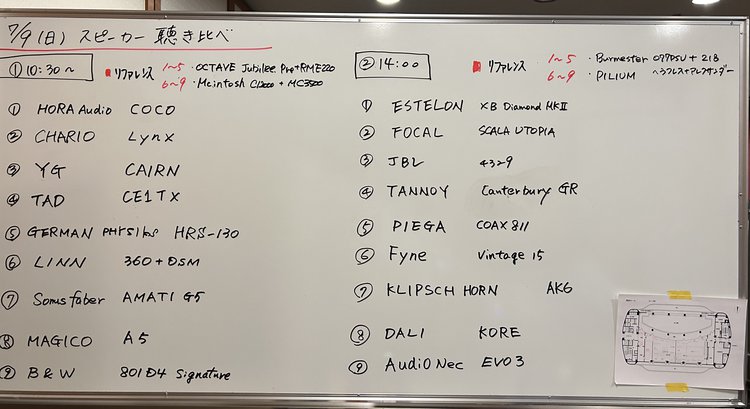 7/9(日) スピーカー 聴き比べ
① 10:30～
■ リファレンス 1～5 ・OCTAVE Jubilee Pre+RME220
6～9 ・Mcintosh C12000 + MC3500
① HORA Audio COCO
② CHARIO Lynx
③ YG CAIRN
④ TAD CE1TX
⑤ GERMAN PHYSIKS HRS-130
⑥ LINN 360+DSM
⑦ Sonus faber AMATI G5
⑧ MAGICO A5
⑨ B&W 801D4 Signature
② 14:00
■ リファレンス 1～5 ・Burmester 077PSU + 218
6～9 ・PILIUM ヘラクレス+アレクサンダー
① ESTELON XB Diamond MKII
② FOCAL SCALA UTOPIA
③ JBL 4329
④ TANNOY Canterbury GR
⑤ PIEGA COAX 811
⑥ Fyne Vintage 15
⑦ KLIPSCH HORN AK6
⑧ DALI KORE
⑨ AudiO Nec EVO3